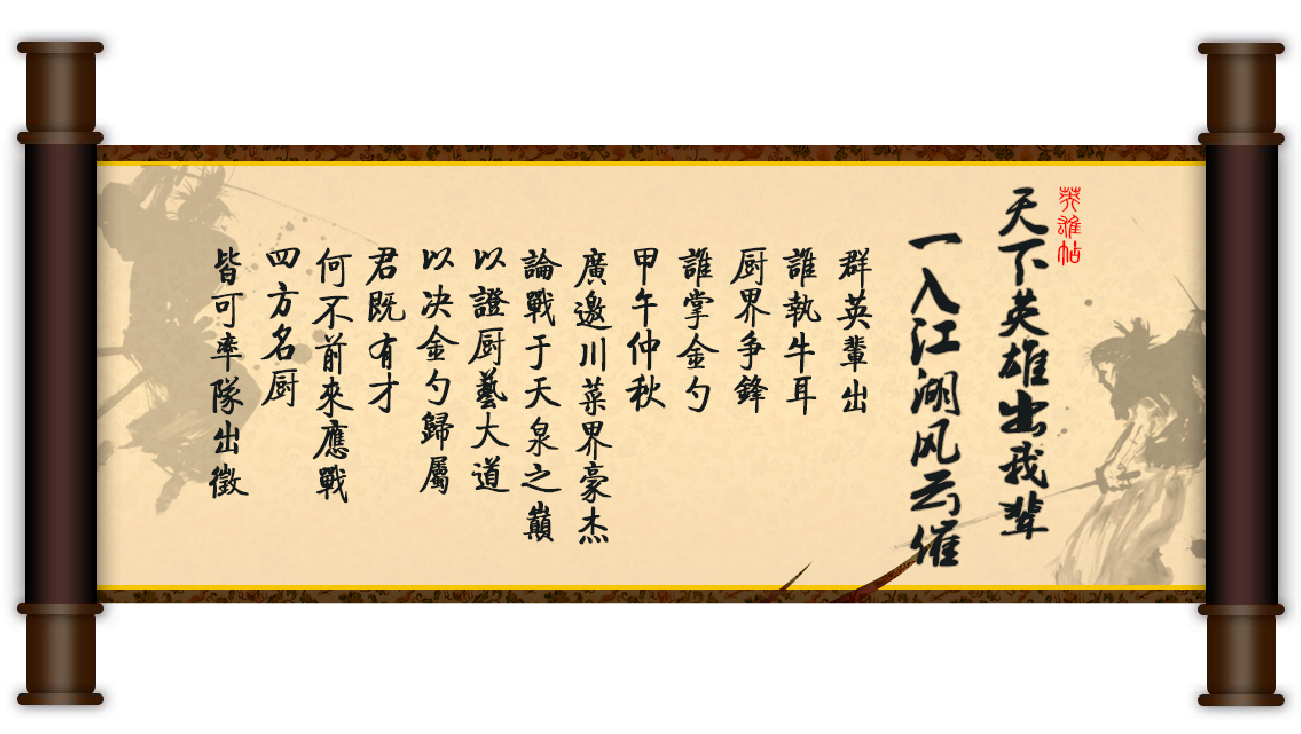 英雄帖
天下英雄出我辈
一入江湖风云催
群英輩出
誰執牛耳
厨界争鋒
誰掌金勺
甲午仲秋
廣邀川菜界豪杰
論戰于天泉之巔
以證厨藝大道
以决金勺歸屬
君既有才
何不前來應戰
四方名厨
皆可率隊出徵